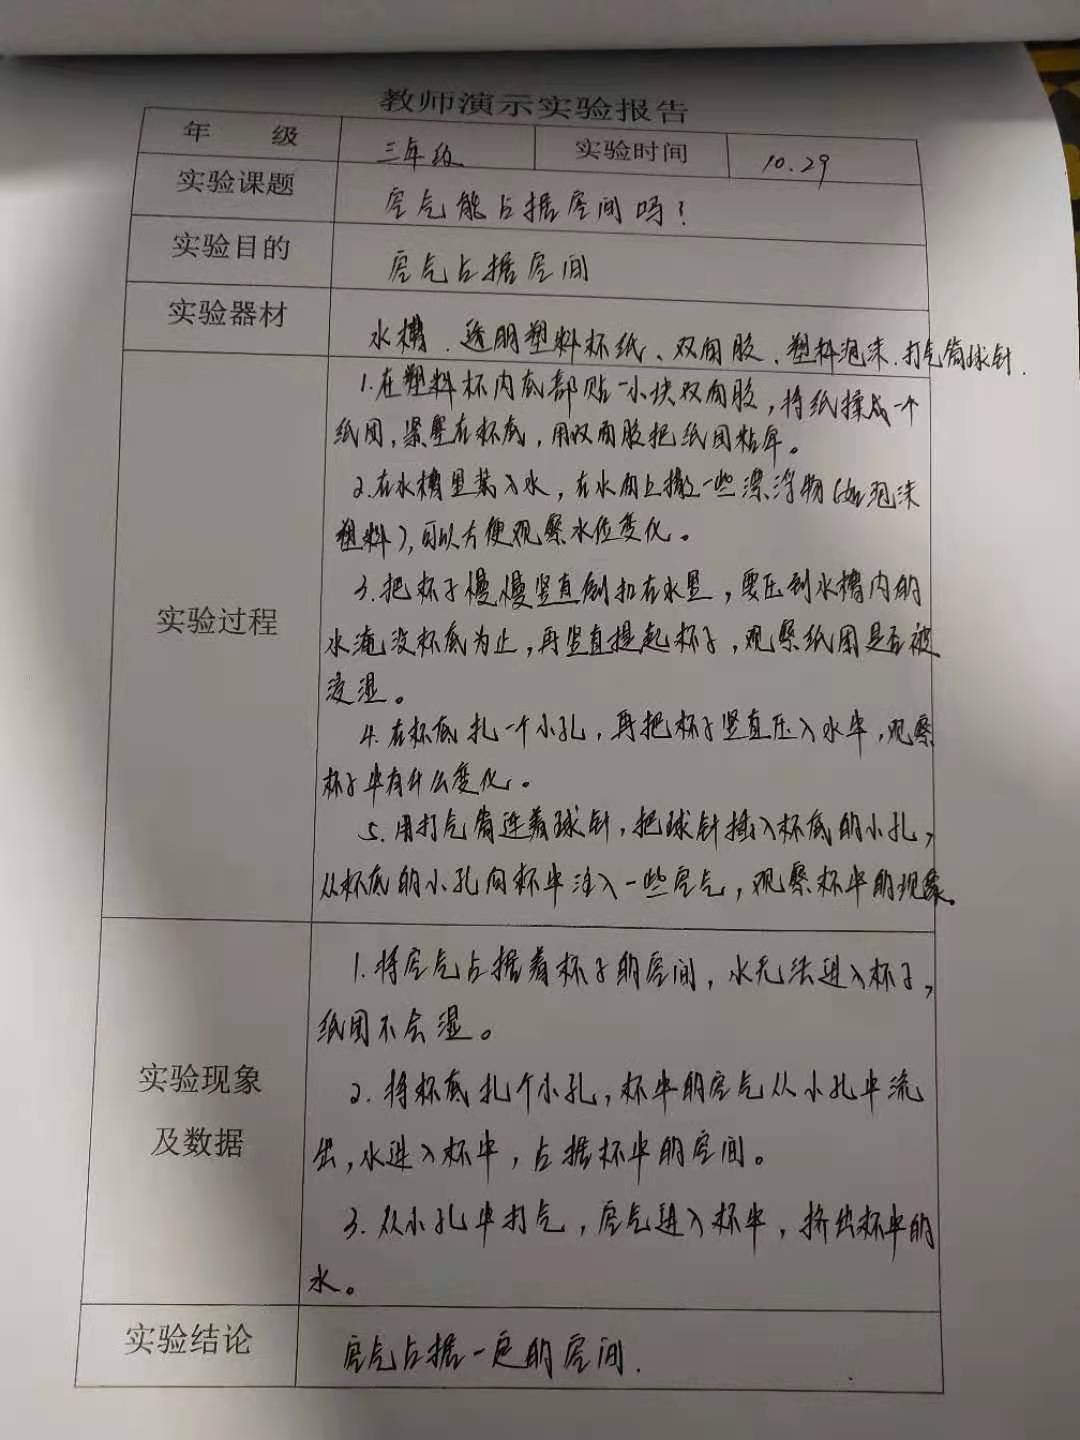 教师演示实验报告
年 级 三年级 实验时间 10.29
实验课题 空气能占据空间吗?
实验目的 空气占据空间
实验器材 水槽、透明塑料杯纸、双面胶、塑料泡沫、打气筒球针.
实验过程
1.在塑料杯内底部贴一小块双面胶,将纸揉成一个
纸团,紧塞在杯底,用双面胶把纸团粘牢。
2.在水槽里装入水,在水面上撒一些漂浮物(如泡沫
塑料),可以方便观察水位变化。
3.把杯子慢慢竖直倒扣在水里,要压到水槽内的
水淹没杯底为止,再竖直提起杯子,观察纸团是否被
浸湿。
4.在杯底扎一个小孔,再把杯子竖直压入水中,观察
杯子中有什么变化。
5.用打气筒连着球针,把球针插入杯底的小孔,
从杯底的小孔向杯中注入一些空气,观察杯中的现象。
实验现象
及数据
1.将空气占据着杯子的空间,水无法进入杯子,
纸团不会湿。
2.将杯底扎个小孔,杯中的空气从小孔中流
出,水进入杯中,占据杯中的空间。
3.从小孔中打气,空气进入杯中,挤出杯中的
水。
实验结论 空气占据一定的空间.